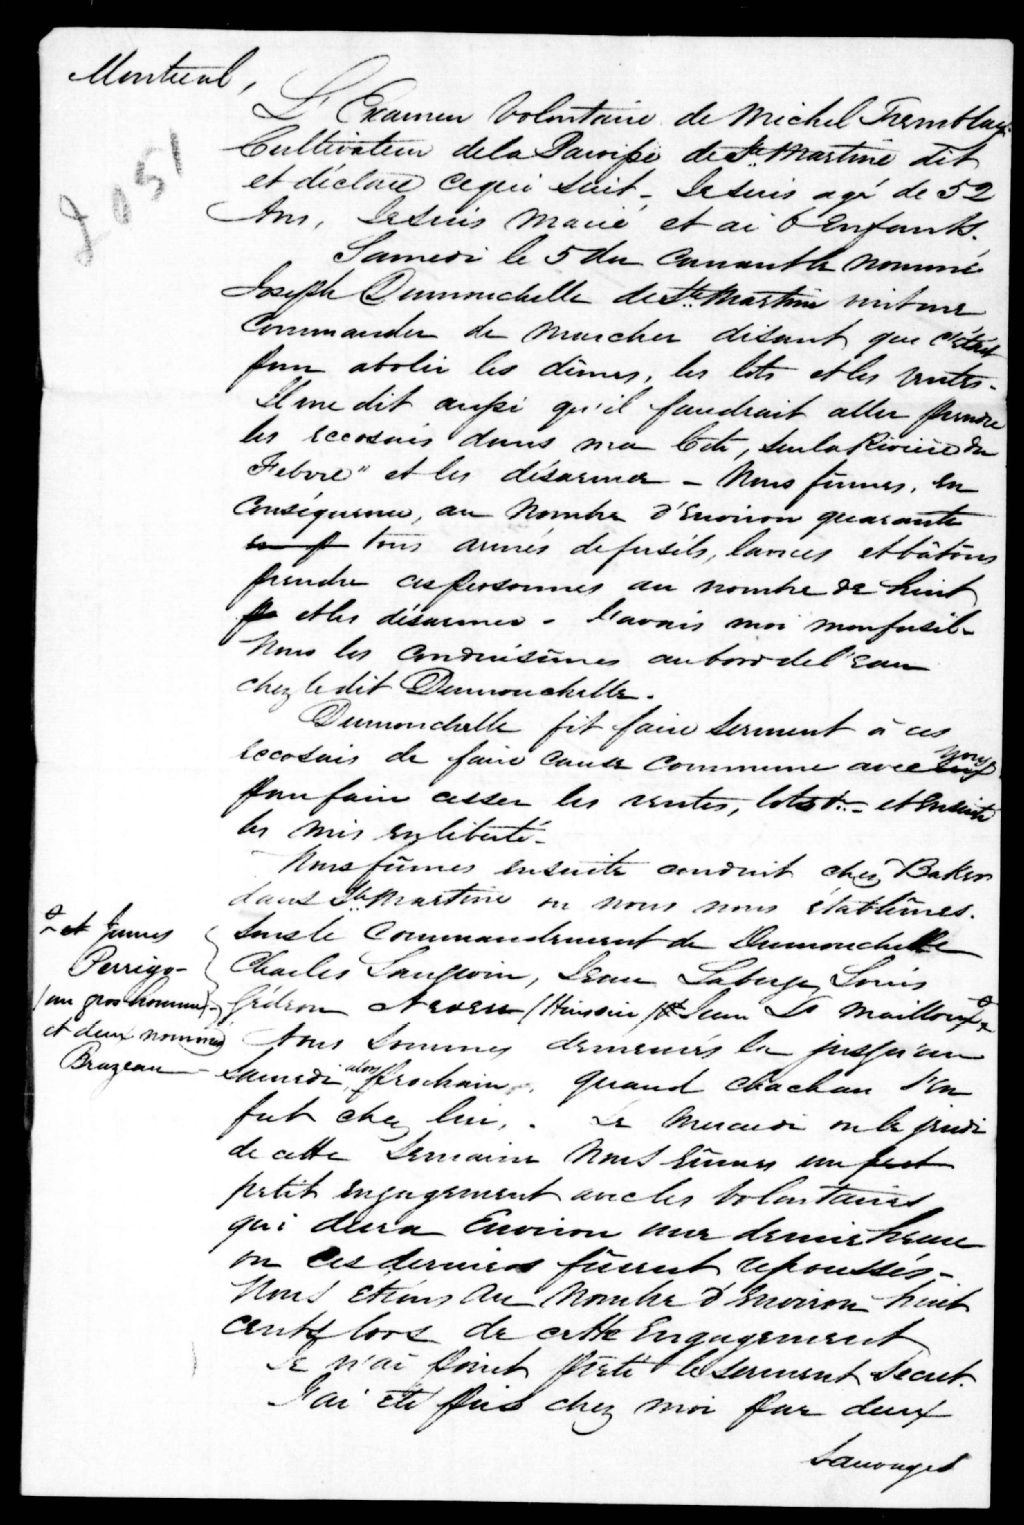 Montreal,
L'Examen Volontaire de Michel Tremblay
2051
Cultivateur de la Paroisse de Ste Martine dit
et déclare ce qui suit - Je suis agé de 52
Ans, Je suis marié et ai 6 Enfants.
Samedi le 5 du Courant le nommé
Joseph Dumouchelle de Ste Martine vint me
Commander de marcher disant que c'était
pour abolir les dîmes, les lots et les ventes.
Il me dit aussi qu'il faudrait aller prendre
les eccosais dans ma Côte, sur la Rivière du
Febvre" et les désarmer - Nous fûmes, en
Conséquence, au Nombre d'Environ quarante
tous armés de fusils, lances et bâtons
prendre ces personnes au nombre de huit
et les désarmer - J'avais moi mon fusil -
Nous les conduisîmes au bord de l'eau
chez le dit Dumouchelle.
Dumouchelle fit faire serment à ces
eccosais de faire cause commune avec nous
pour faire cesser les rentes, lots &c - et ensuite
les mis en liberté -
Nous fûmes ensuite conduit chez Baker
dans Ste Martine ou nous nous établîmes.
Sous le Commandement de Dumouchelle
Charles Sanguin, Jean Laberge, Louis
Gédéon Neveu (Huissier) & Jean Ls Mailloux
et James
Perrigo -
(un gros homme) -
et deux nommés
Brazeau -
Nous sommes demeurés la jusqu'au
Samedi alors prochain, quand chachun s'en
fut chez lui. Le Mercredi ou le jeudi
de cette Semaine Nous eûmes un
petit engagement avec les Volontaires
qui dura Environ une demie heure
ou ces derniers fûrent repoussés -
Nous etions au Nombre d'Environ huit
cents lors de cette Engagement
Je n'ai point prêté le serment secret.
J'ai eté pris chez moi par deux
Sauvages